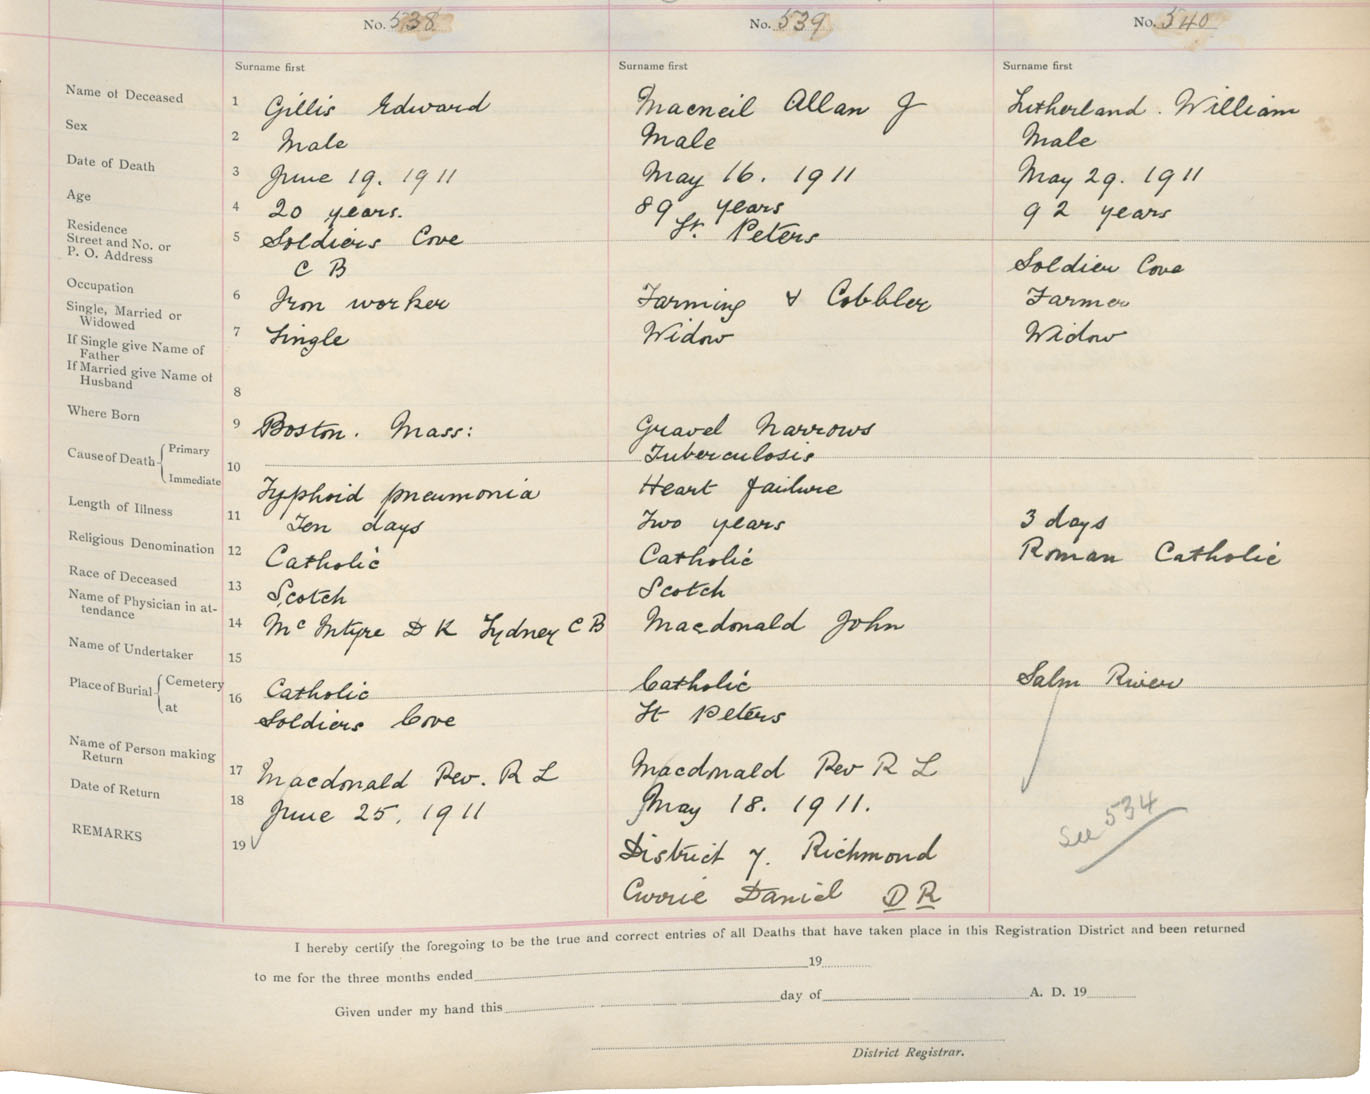 No. 538 No. 539 No. 540
Surname first Surname first Surname first
Name of Deceased 1 Gillis Edward Macneil Allan J Sutherland. William
Sex 2 Male Male Male
Date of Death 3 June 19. 1911 May 16. 1911 May 29. 1911
Age 4 20 years. 89 years 92 years
Residence
Street and No. or 5 Soldiers Cove St. Peters
P. O. Address C B Soldier Cove
Occupation 6 Iron worker Farming & Cobbler Farmer
Single, Married or
Widowed 7 Single Widow Widow
If Single give Name of
Father
If Married give Name of
Husband 8
Where Born 9 Boston. Mass: Gravel Narrows
Cause of Death Primary 10 Tuberculosis
Immediate Typhoid pneumonia Heart failure
Length of Illness 11 Ten days Two years 3 days
Religious Denomination 12 Catholic Catholic Roman Catholic
Race of Deceased 13 Scotch Scotch
Name of Physician in at-
tendance 14 Mc Intyre D K Sydney C B Macdonald John
Name of Undertaker 15
Place of Burial Cemetery 16 Catholic Catholic Salm River
at Soldiers Cove St Peters
Name of Person making
Return 17 Macdonald Rev. R L Macdonald Rev R L
Date of Return 18 June 25, 1911 May 18. 1911.
REMARKS 19 District 7. Richmond See 534
Currie Daniel D R
I hereby certify the foregoing to be the true and correct entries of all Deaths that have taken place in this Registration District and been returned
to me for the three months ended 19
Given under my hand this day of A. D. 19
District Registrar.